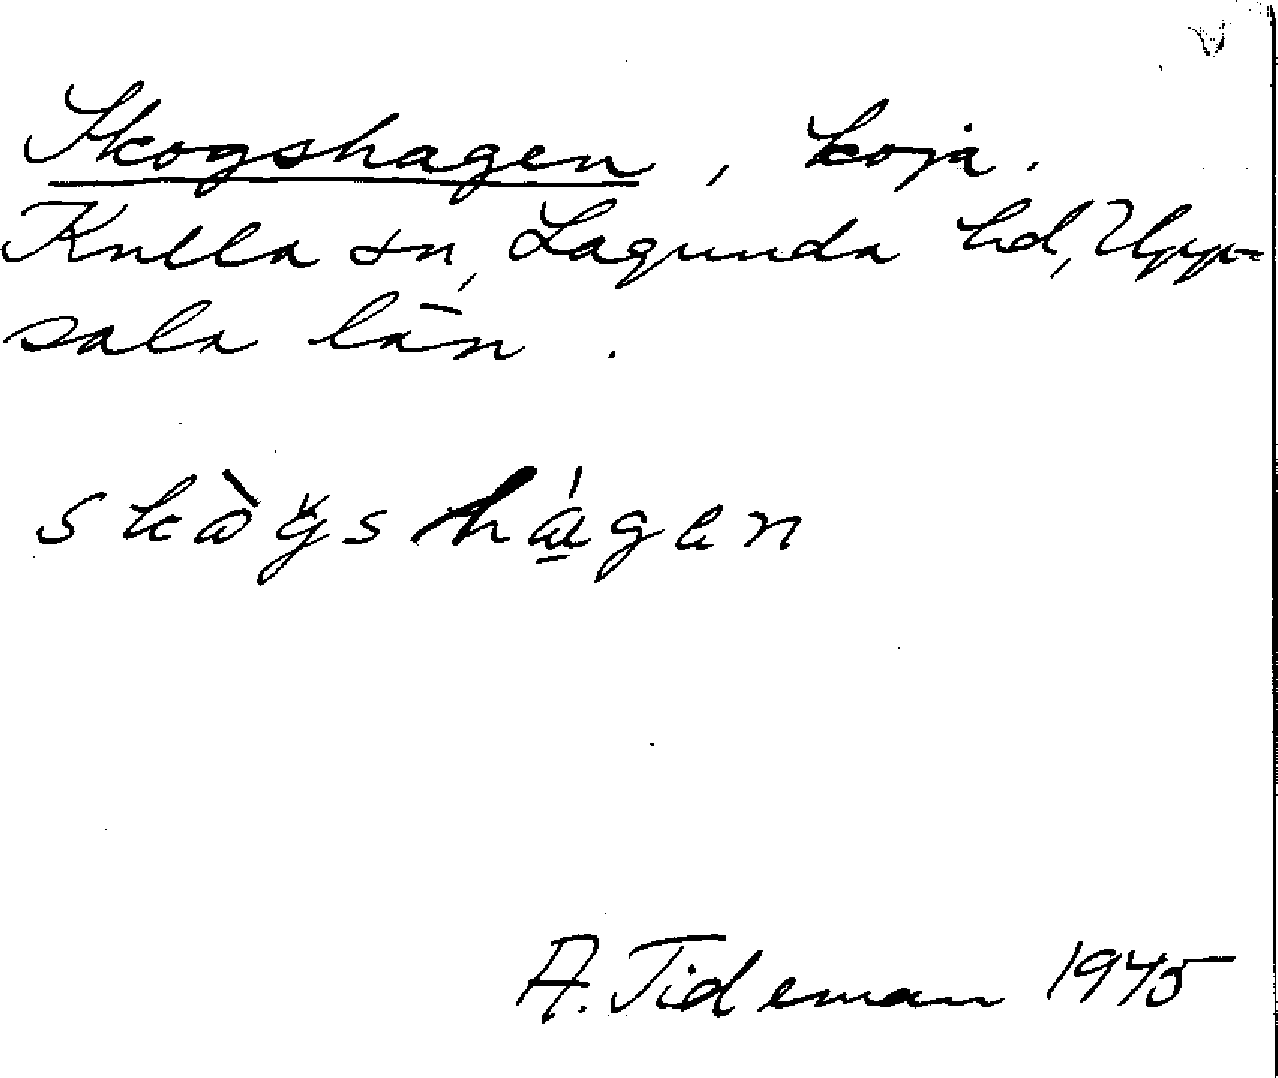 Skogshagen, koja.
Kulla sn, Lagunda hd, Upp-
sala län.
skògshágen
A. Tideman 1945